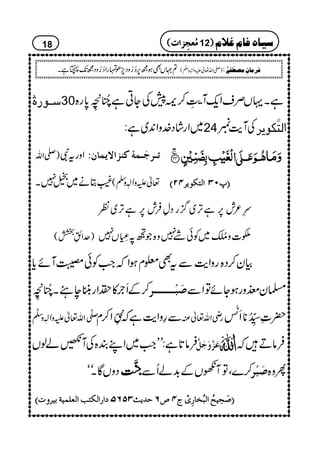 سیاہ فام غلام (12 مُعجِزات) 18
فرمانِ مصطَفٰے (صلی اللہ تعالیٰ علیہ والہٖ وسلم) تم جہاں بھی ہو مجھ پر دُرُود پڑھو تمہارا دُرُود مجھ تک پہنچتا ہے۔
ہے ۔ یہاں صرف ایک آیتِ کریمہ پیش کی جاتی ہے چُنانچِہ پارہ 30 سورۃُ
التَّکویر کی آیت نمبر 24 میں ارشادِ خداوندی ہے:
وَمَا هُوَ عَلَى الْغَيْبِ بِضَنِيْنٍ ﴿۲۴﴾ تَرجَمۂ کنزالایمان: اور یہ نبی (صلی اللہ
(پ۳۰ التکویر ۲۴) تعالیٰ علیہ واٰلہٖ وسلّم) غیب بتانے میں بخیل نہیں ۔
سرِ عرش پر ہے تری گزر دلِ فرش پر ہے تری نظر
ملکوت و مُلک میں کوئی شے نہیں وہ جو تجھ پہ عِیاں نہیں (حدائقِ بخشش)
بیان کردہ روایت سے یہ بھی معلوم ہوا کہ جب کوئی مصیبت آئے یا
مسلمان معذور ہو جائے تو اسے صَبْر کر کے اَجْر کا حقدار بننا چاہئے ۔ چُنانچِہ
حضرتِ سیِّدُنا اَنَس رضی اللہ تعالیٰ عنہ سے روایت ہے کہ نبیِّ اکرم صلی اللہ تعالیٰ علیہ واٰلہٖ وسلّم
فرماتے ہیں کہ اللہ عَزَّوَجَلَّ فرماتا ہے: ”جب میں اپنے بندہ کی آنکھیں لے لوں
پھر وہ صَبْر کرے، تو آنکھوں کے بدلے اُسے جنّت دوں گا۔“
(صَحِیحُ البُخارِی ج۴ ص۶ حدیث ۵۶۵۳ دارالکتب العلمیۃ بیروت)